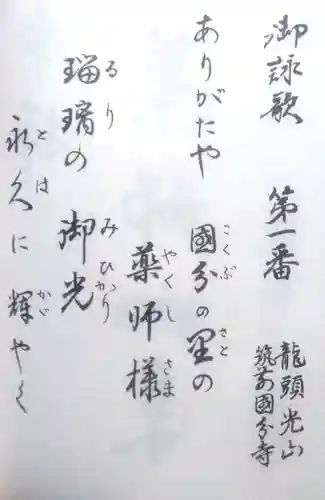 御詠歌 第一番
龍頭光山
筑前國分寺
ありがたや 國分の里の
こくぶ さと
薬師様
やくし さま
瑠璃の 御光
るり みひかり
永久に 輝やく
とは かが